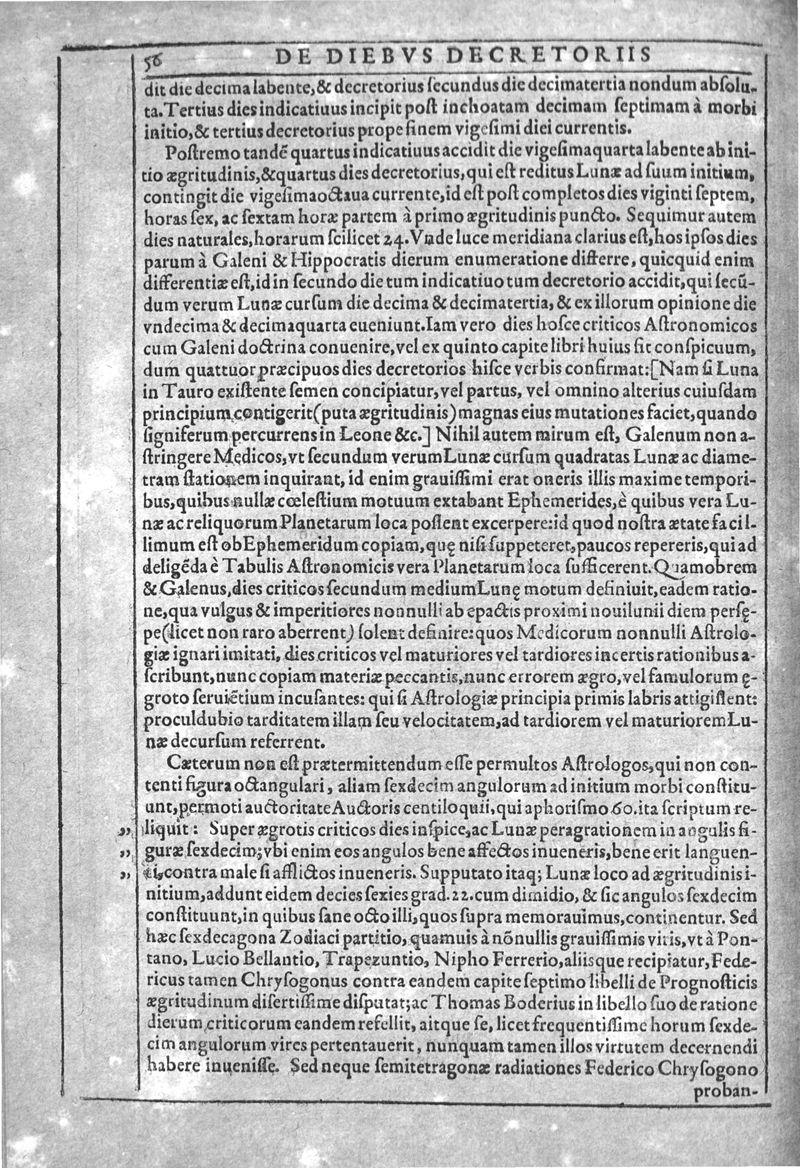 56 DE DIEBVS DECRETORIIS
dit die decima labente,& decretorius ſecundus die decimatertia nondum abſolu-
ta.Tertius dies indicatiuus incipit poſt inchoatam decimam ſeptimam à morbi
initio,& tertius decretorius prope finem vigeſimi diei currentis.
Poſtremo tandē quartus indicatiuus accidit die vigeſimaquarta labente ab ini-
tio ægritudinis,& quartus dies decretorius, qui eſt reditus Lunæ ad ſuum initium,
contingit die vigeſimaoctaua currente, id eſt poſt completos dies viginti ſeptem,
horas ſex, ac ſextam horæ partem à primo ægritudinis puncto. Sequimur autem
dies naturales, horarum ſcilicet 24. Vnde luce meridiana clarius eſt, hos ipſos dies
parum à Galeni & Hippocratis dierum enumeratione differre, quicquid enim
differentiæ eſt, id in ſecundo die tum indicatiuo tum decretorio accidit, qui ſecū-
dum verum Lunæ curſum die decima & decimatertia, & ex illorum opinione die
vndecima & decimaquarta eueniunt. Iam vero dies hoſce criticos Aſtronomicos
cum Galeni doctrina conuenire, vel ex quinto capite libri huius ſit conſpicuum,
dum quattuor præcipuos dies decretorios hiſce verbis confirmat:[Nam ſi Luna
in Tauro exiſtente ſemen concipiatur, vel partus, vel omnino alterius cuiuſdam
principium contigerit(puta ægritudinis) magnas eius mutationes faciet, quando
ſigniferum percurrens in Leone &c.] Nihil autem mirum eſt, Galenum non a-
ſtringere Medicos, vt ſecundum verum Lunæ curſum quadratas Lunæ ac diame-
tram ſtationem inquirant, id enim grauiſſimi erat oneris illis maxime tempori-
bus, quibus nullæ cœleſtium motuum extabant Ephemerides, è quibus vera Lu-
næ ac reliquorum Planetarum loca poſſent excerpere: id quod noſtra ætate facil-
limum eſt ob Ephemeridum copiam, quę niſi ſuppeteret, paucos repereris, qui ad
deligēda è Tabulis Aſtronomicis vera Planetarum loca ſufficerent. Quamobrem
& Galenus, dies criticos ſecundum medium Lunę motum definiuit, eadem ratio-
ne, qua vulgus & imperitiores nonnulli ab epactis proximi nouilunii diem perſę-
pe(licet non raro aberrent) ſolent definire: quos Medicorum nonnulli Aſtrolo-
giæ ignari imitati, dies criticos vel maturiores vel tardiores incertis rationibus a-
ſcribunt, nunc copiam materiæ peccantis, nunc errorem ægro, vel famulorum ę-
groto ſeruiētium incuſantes: qui ſi Aſtrologiæ principia primis labris attigiſſent:
proculdubio tarditatem illam ſeu velocitatem, ad tardiorem vel maturiorem Lu-
næ decurſum referrent.
Cæterum non eſt prætermittendum eſſe permultos Aſtrologos, qui non con-
tenti figura octangulari, aliam ſexdecim angulorum ad initium morbi conſtitu-
unt, permoti auctoritate Auctoris centiloquii, qui aphoriſmo 60. ita ſcriptum re-
„ liquit: Super ægrotis criticos dies inſpice, ac Lunæ peragrationem in angulis fi-
„ guræ ſexdecim; vbi enim eos angulos bene affectos inueneris, bene erit languen-
„ ti, contra male ſi afflictos inueneris. Supputato itaq; Lunæ loco ad ægritudinis i-
nitium, addunt eidem decies ſexies grad. 22. cum dimidio, & ſic angulos ſexdecim
conſtituunt, in quibus ſane octo illi, quos ſupra memorauimus, continentur. Sed
hæc ſexdecagona Zodiaci partitio, quamuis à nōnullis grauiſſimis viris, vt à Pon-
tano, Lucio Bellantio, Trapezuntio, Nipho Ferrerio, aliisque recipiatur, Fede-
ricus tamen Chryſogonus contra eandem capite ſeptimo libelli de Prognoſticis
ægritudinum diſertiſſime diſputat; ac Thomas Boderius in libello ſuo de ratione
dierum criticorum eandem refellit, aitque ſe, licet frequentiſſime horum ſexde-
cim angulorum vires pertentauerit, nunquam tamen illos virtutem decernendi
habere inueniſſe. Sed neque ſemitetragonæ radiationes Federico Chryſogono
proban-